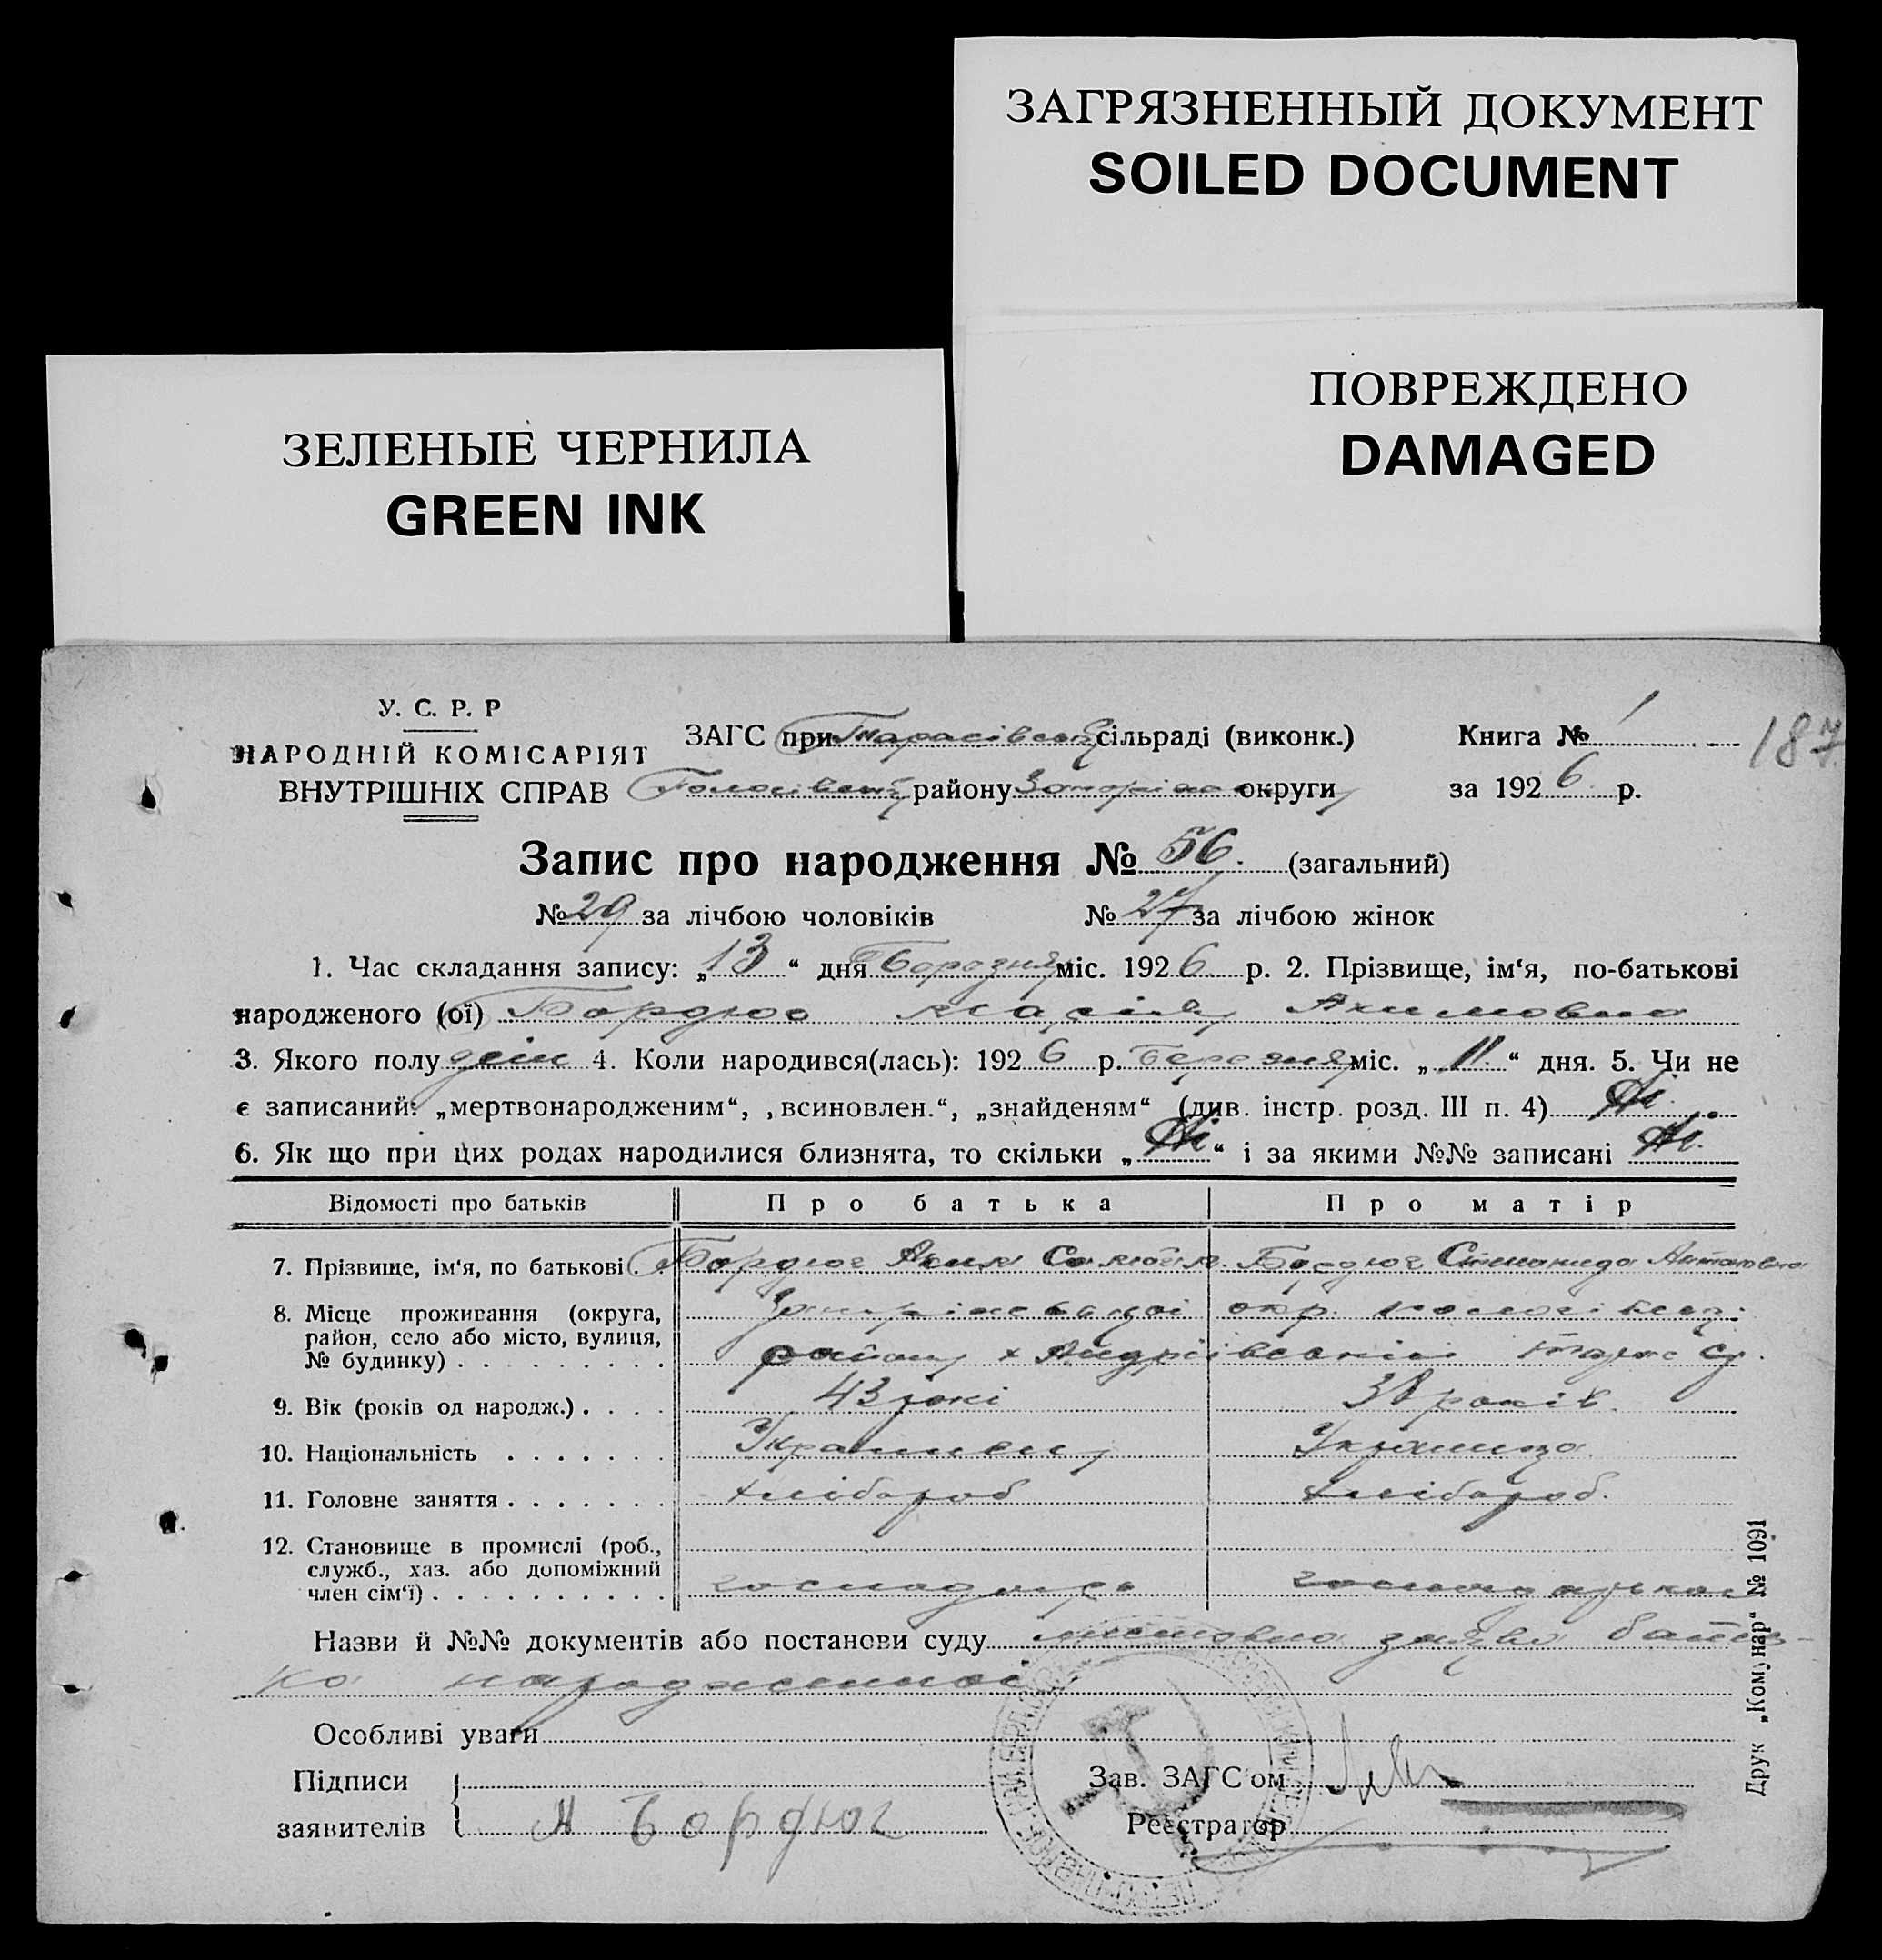 ЗАГРЯЗНЕННЫЙ ДОКУМЕНТ
SOILED DOCUMENT
ПОВРЕЖДЕНО
DAMAGED
ЗЕЛЕНЫЕ ЧЕРНИЛА
GREEN INK
У. С. Р. Р
НАРОДНІЙ КОМІСАРІЯТ
ВНУТРІШНІХ СПРАВ
ЗАГС при Тарасівській сільраді (виконк.)
району округи
Книга № 1
187
за 1926 р.
Запис про народження № 56. (загальний)
№ 29 за лічбою чоловіків № 27 за лічбою жінок
1. Час складання запису: „13“ дня Березня міс. 1926 р. 2. Прізвище, ім‘я, по-батькові
народженого (ої) Бордюг
3. Якого полу 4. Коли народився(лась): 1926 р. Березня міс. „11.“ дня. 5. Чи не
є записаний: „мертвонародженим“, „всиновлен.“, „знайденям“ (див. інстр. розд. III п. 4) Ні.
6. Як що при цих родах народилися близнята, то скільки „Ні“ і за якими №№ записані Ні.
Відомості про батьків Про батька Про матір
7. Прізвище, ім‘я, по батькові . . Бордюг Бордюг
8. Місце проживання (округа,
район, село або місто, вулиця,
№ будинку) . . . . . . . . . району х Андріївській
9. Вік (років од народж.) . . . . 43 рокі 38 років.
10. Національність . . . . . . . Українець Українка
11. Головне заняття . . . . . . . хлібороб хлібороб.
12. Становище в промислі (роб.,
служб., хаз. або допоміжний
член сім‘ї) . . . . . . . . . . господарь
Назви й №№ документів або постанови суду заява батьк-
а народженної
Особливі уваги
Підписи
заявителів
А Бордюг
Зав. ЗАГС‘ом
Реєстратор
Друк „Комунар“ № 1091